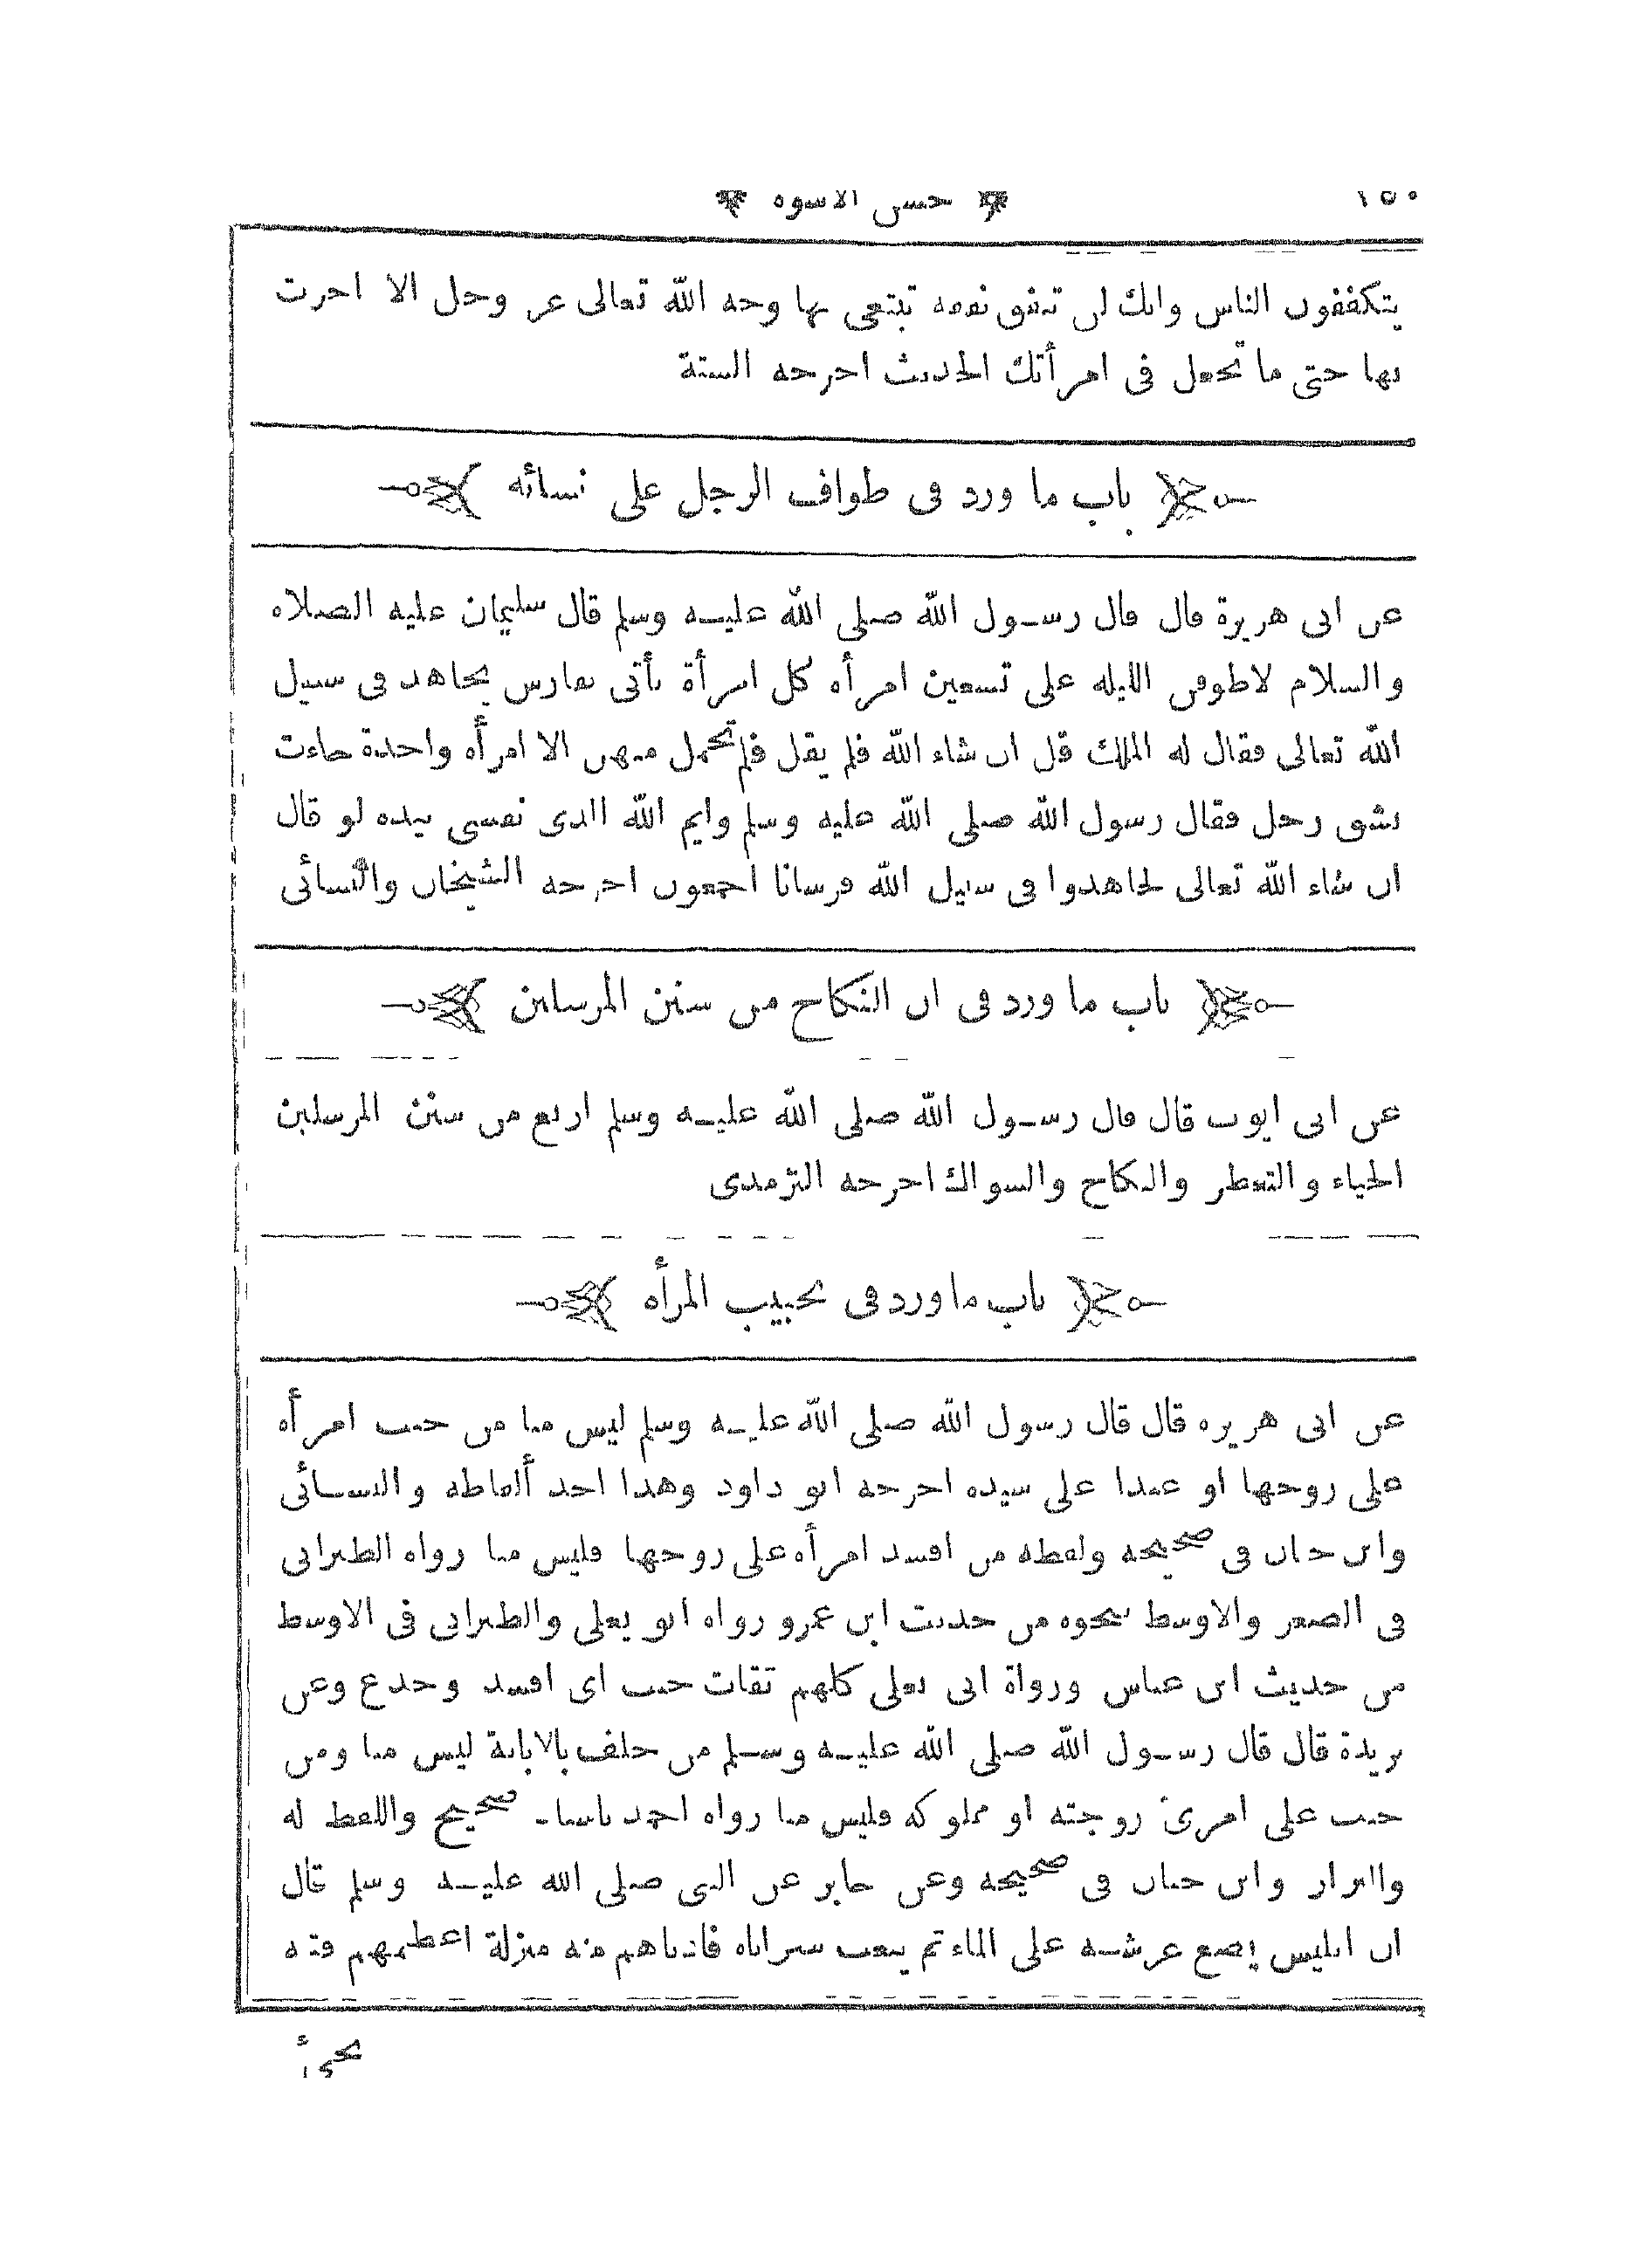 ١٥٠ حسن الاسوه
يتكففون الناس وانك لن تنفق نفقه تبتغى بها وجه الله تعالى عز وجل الا اجرت
بها حتى ما تجعل فى امرأتك الحديث اخرجه الستة
باب ما ورد فى طواف الرجل على نسائه
عن ابى هريرة قال قال رسول الله صلى الله عليه وسلم قال سليمان عليه الصلاه
والسلام لاطوفن الليله على تسعين امرأه كل امرأة تأتى بفارس يجاهد فى سبيل
الله تعالى فقال له الملك قل ان شاء الله فلم يقل فلم تحمل منهن الا امرأه واحدة جاءت
بشق رجل فقال رسول الله صلى الله عليه وسلم وايم الله الذى نفسى بيده لو قال
ان شاء الله تعالى لجاهدوا فى سبيل الله فرسانا اجمعون اخرجه الشيخان والنسائى
باب ما ورد فى ان النكاح من سنن المرسلين
عن ابى ايوب قال قال رسول الله صلى الله عليه وسلم اربع من سنن المرسلين
الحياء والتعطر والنكاح والسواك اخرجه الترمذى
باب ما ورد فى تخبيب المرأه
عن ابى هريره قال قال رسول الله صلى الله عليه وسلم ليس منا من خبب امرأه
على زوجها او عبدا على سيده اخرجه ابو داود وهذا احد ألفاظه والنسائى
وابن حبان فى صحيحه ولفظه من افسد امرأه على زوجها فليس منا رواه الطبرانى
فى الصغير والاوسط بنحوه من حديث ابن عمرو رواه ابو يعلى والطبرانى فى الاوسط
من حديث ابن عباس ورواة ابى يعلى كلهم ثقات خبب اى افسد وخدع وعن
بريدة قال قال رسول الله صلى الله عليه وسلم من حلف بالامانة ليس منا ومن
خبب على امرئ زوجته او مملوكه فليس منا رواه احمد باسناد صحيح واللفظ له
والبزار وابن حبان فى صحيحه وعن جابر عن النبى صلى الله عليه وسلم قال
ان ابليس يضع عرشه على الماء ثم يبعث سراياه فادناهم منه منزلة اعظمهم فتنه